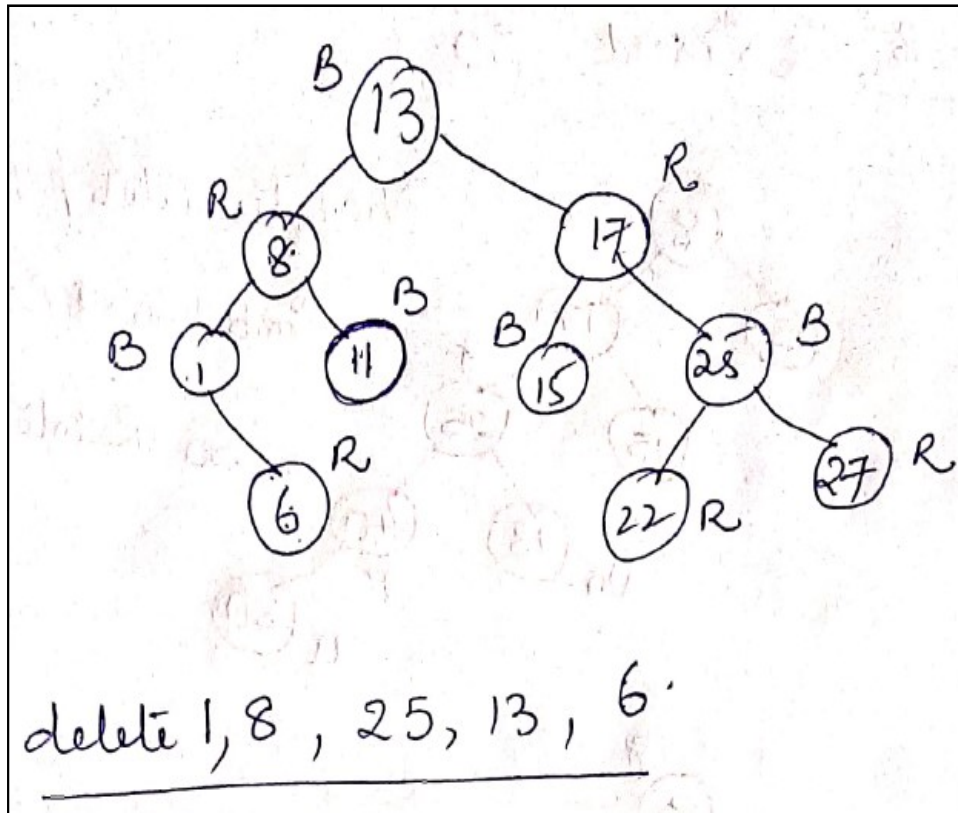 B
13
R
8
R
17
B
1
B
11
B
15
25
B
R
6
22 R
27 R
delete 1, 8, 25, 13, 6.